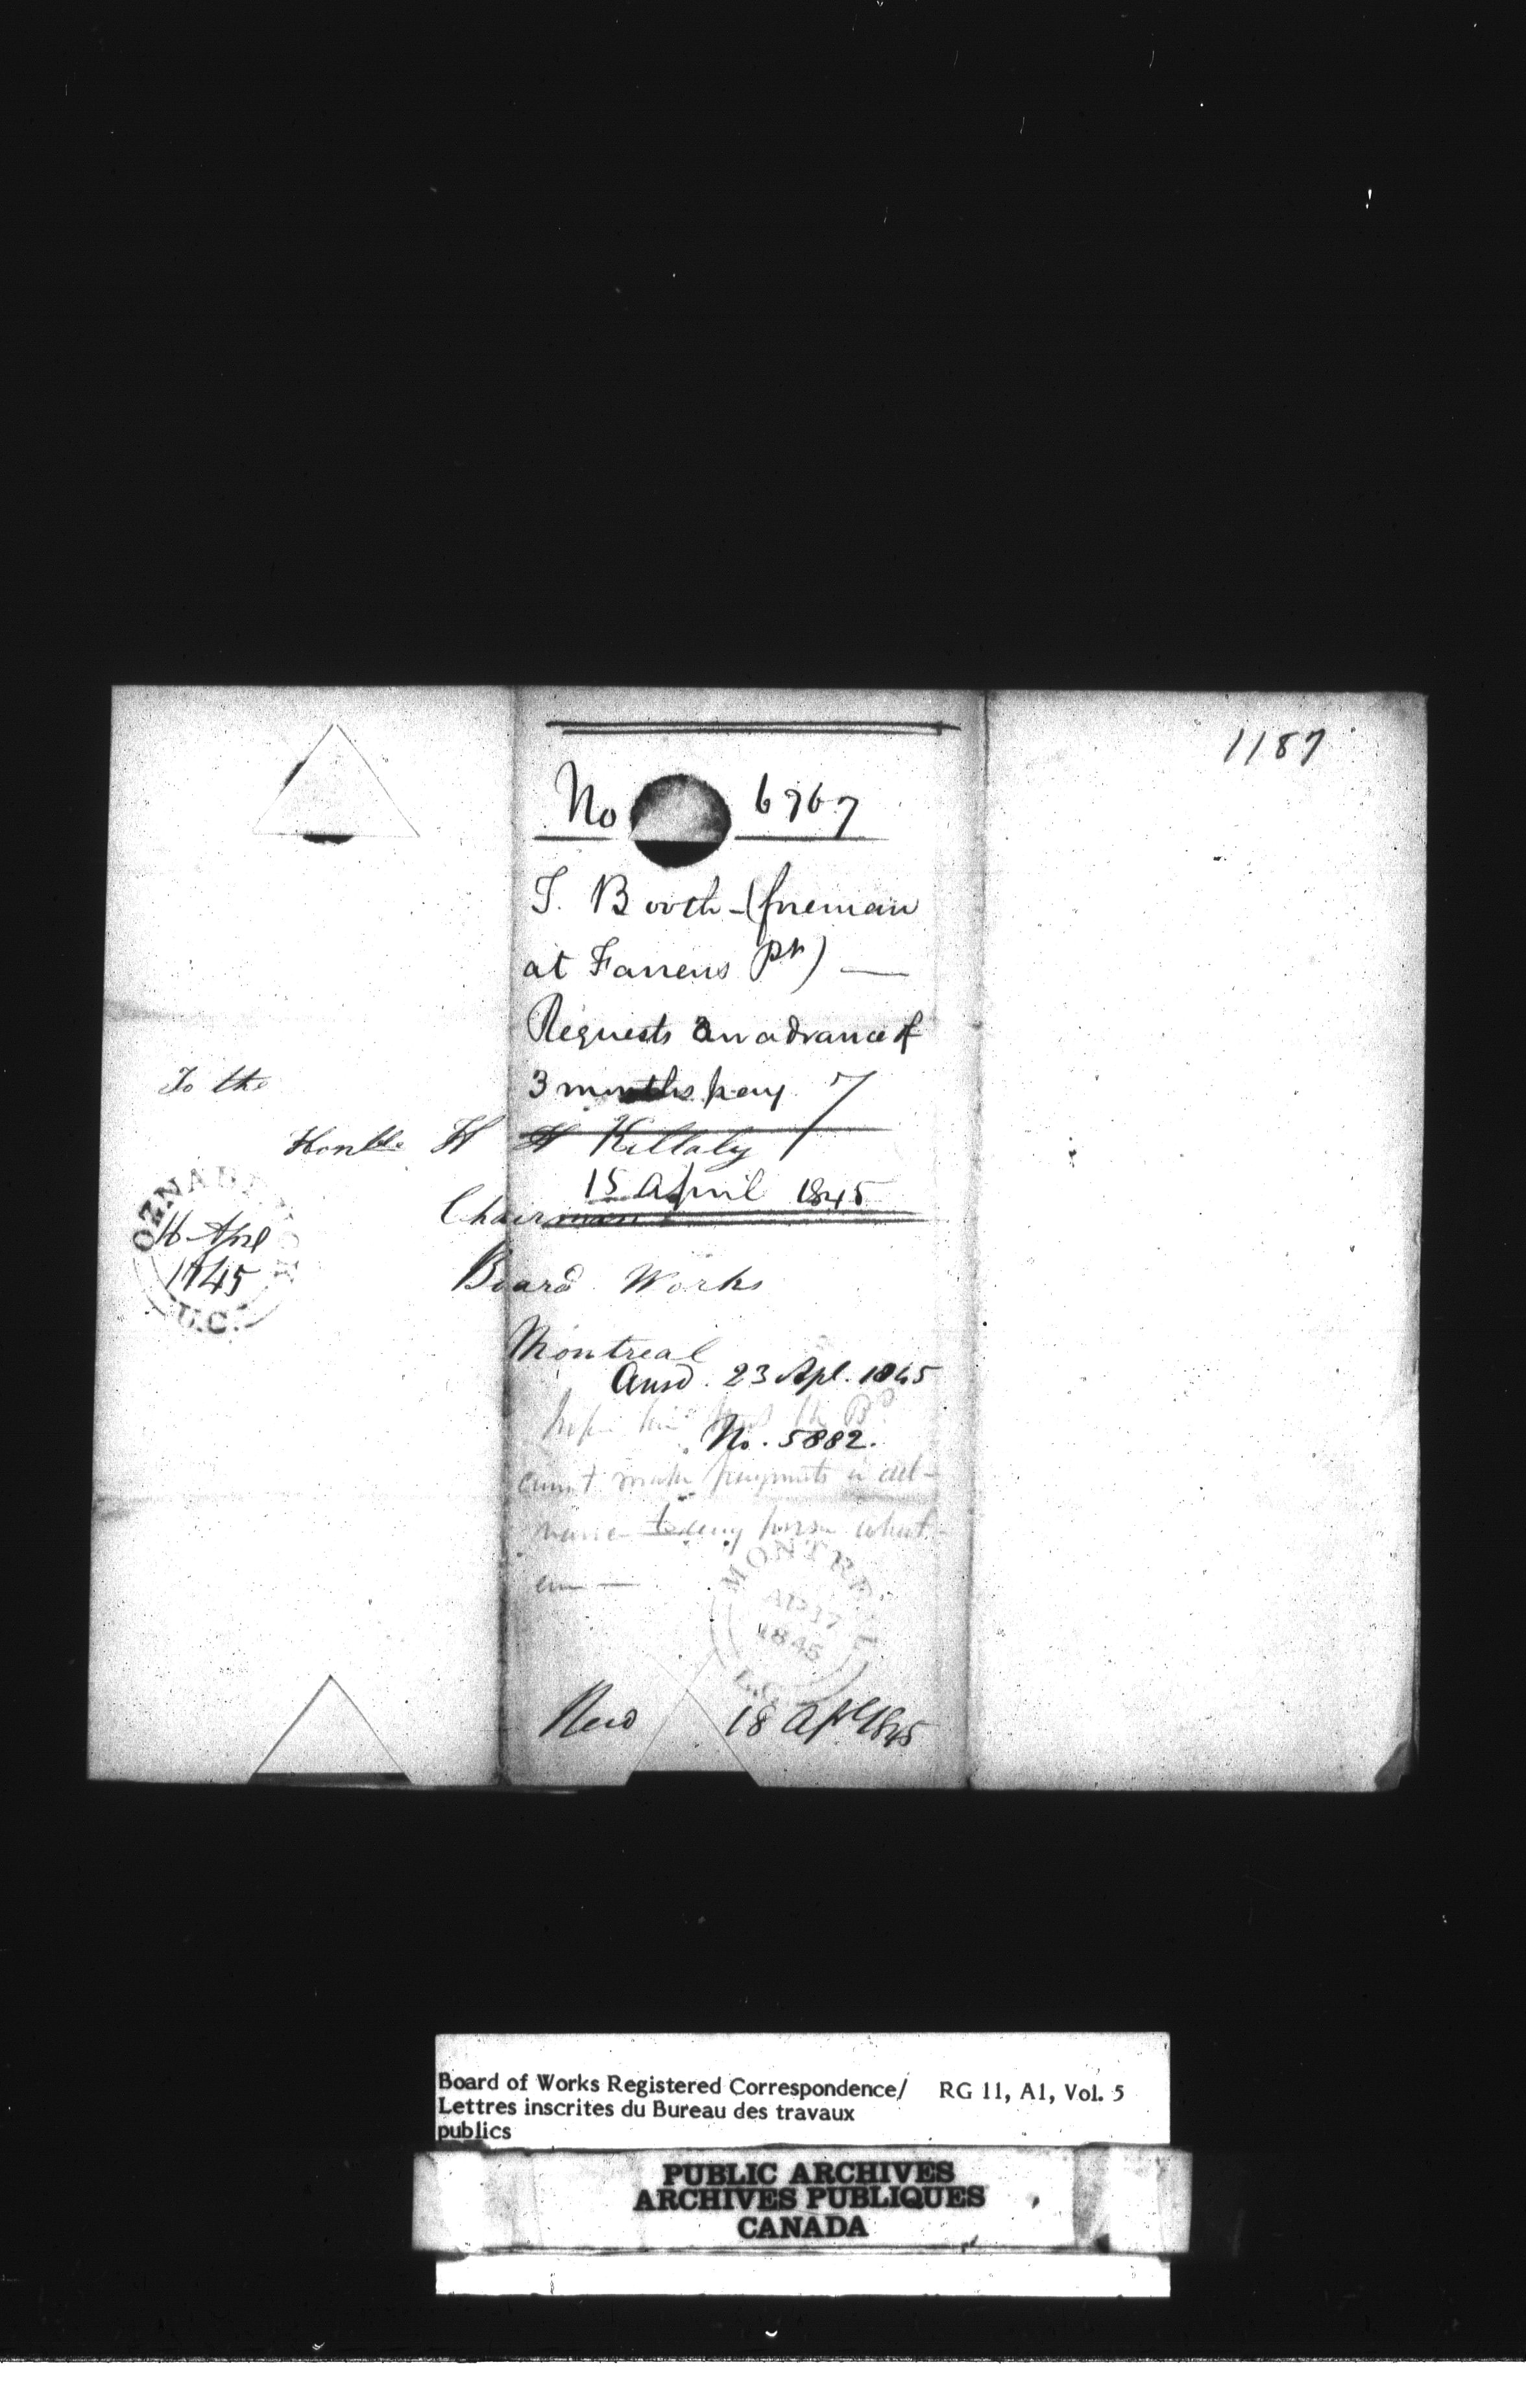 1187
No 6767
T. Booth - (foreman
at Farrens Pt) —
Requests an advance of
3 months pay
To the
Honble H H Killaly
15 April 1845
Chairman
Board Works
Montreal
OZNABRUCK
16 Apl
1845
U.C.
Ansd. 23 Apl. 1845
No. 5882.
Inform him that the Bd.
cannot make payments in ad-
vance to any person what-
ever —
MONTREAL
AP 17
1845
L.C.
Recd 18 Apl 1845
Board of Works Registered Correspondence/ RG 11, A1, Vol. 5
Lettres inscrites du Bureau des travaux
publics
PUBLIC ARCHIVES
ARCHIVES PUBLIQUES
CANADA